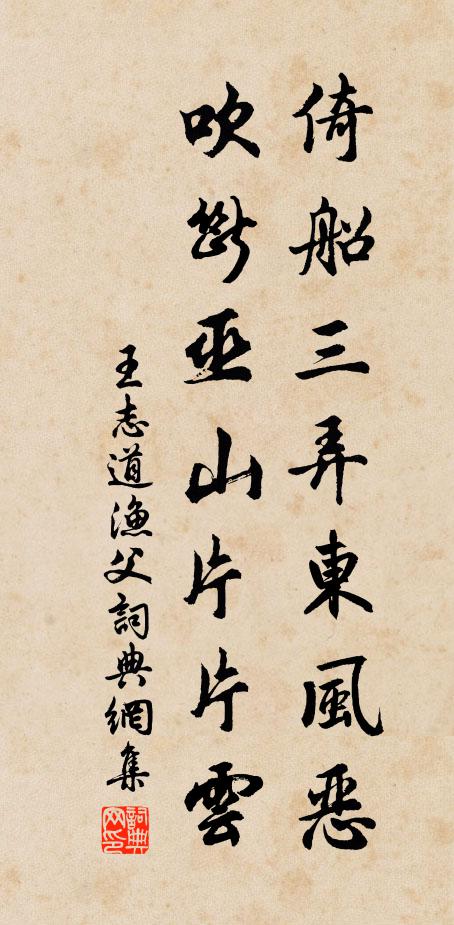 倚船三弄東風惡
吹斷巫山片片雲
王志道漁父詞典網集
詞典网印